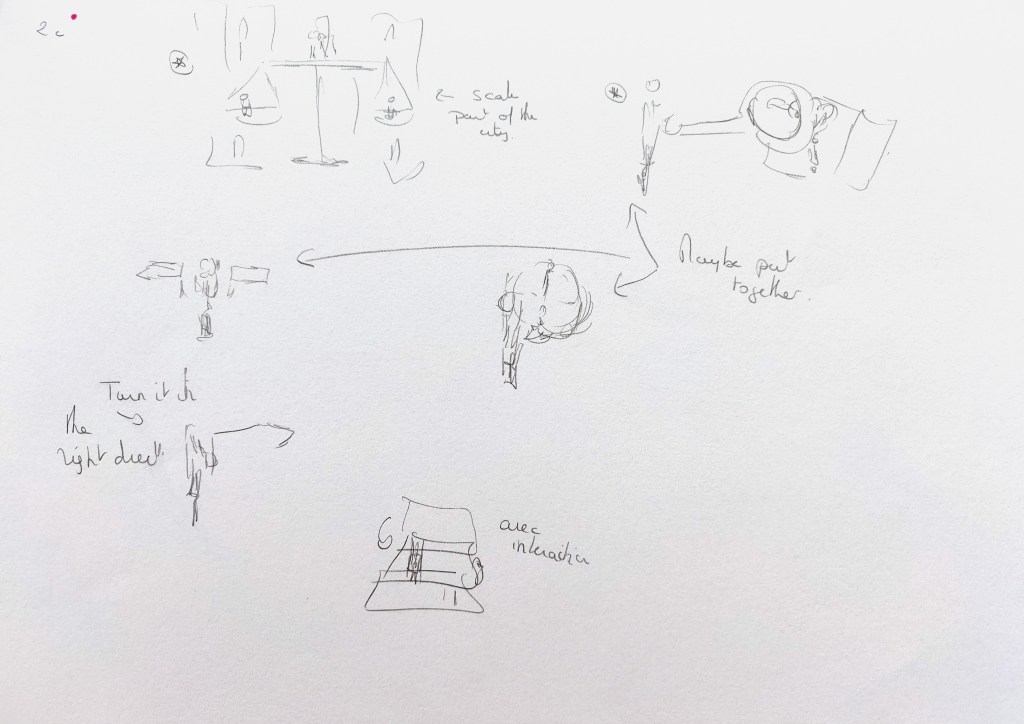 2c
← scale
part of the
city.
Maybe put
together.
Turn it in
the
right direct°
avec
interaction